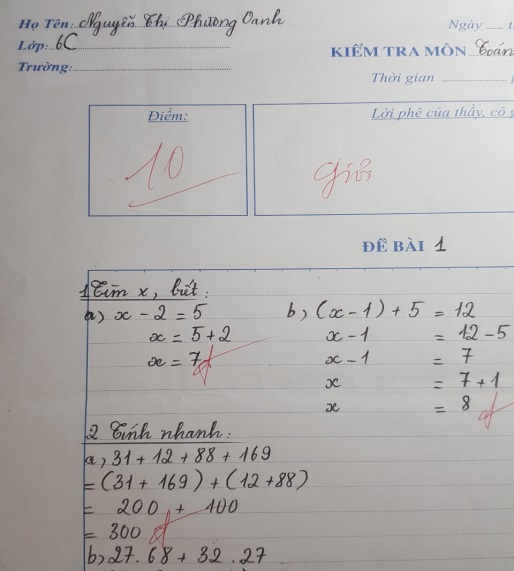 Họ Tên: Nguyễn Thị Phương Oanh
Ngày
Lớp: 6C
KIỂM TRA MÔN Toán
Trường:
Thời gian
Điểm:
Lời phê của thầy, cô g
10
Giỏi
ĐỀ BÀI 1
1 Tìm x, biết:
a) x - 2 = 5
x = 5 + 2
x = 7
b, (x - 1) + 5 = 12
x - 1 = 12 - 5
x - 1 = 7
x = 7 + 1
x = 8
2 Tính nhanh:
a, 31 + 12 + 88 + 169
= (31 + 169) + (12 + 88)
= 200 + 100
= 300
b) 27 . 68 + 32 . 27